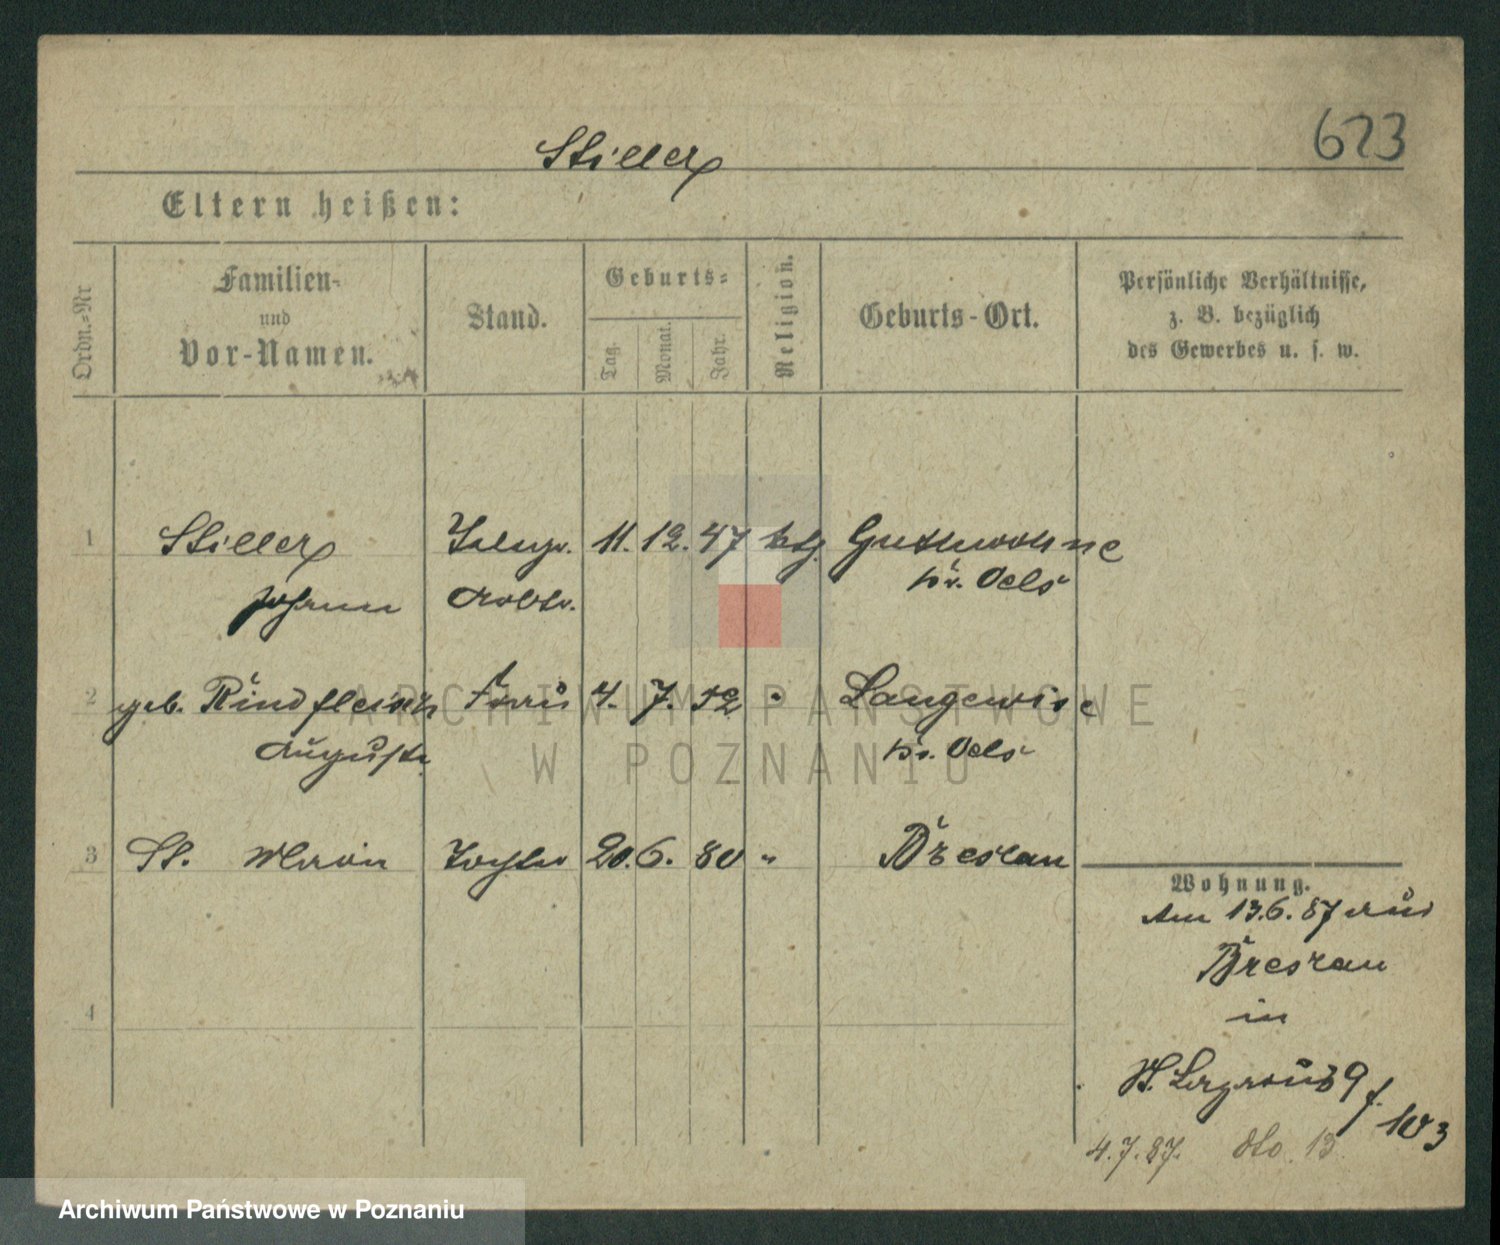 623
Stiller
Eltern heißen:
Ordn.-Nr
Familien-
und
Vor-Namen.
Stand.
Geburts-
Tag.
Monat.
Jahr.
Religion.
Geburts-Ort.
Persönliche Verhältnisse,
z. B. bezüglich
des Gewerbes u. s. w.
1 Stiller 11. 12. 47 ktg. Gutwohne
Johann Arbtr. Kr. Oels
2 geb. Rindfleisch Frau 4. 7. 52 " Langewise
Auguste Kr. Oels
3 St. Maria Tochter 20. 6. 80 " Breslau
Wohnung.
Am 13.6.87 aus
Breslau
in
4
9
4.7.87. dto 13
ARCHIWUM PAŃSTWOWE
W POZNANIU
Archiwum Państwowe w Poznaniu